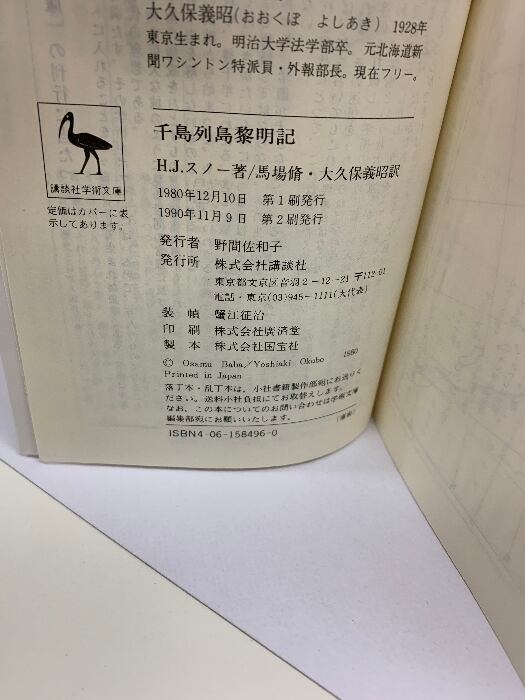 大久保義昭(おおくぼ よしあき) 1928年
東京生まれ。明治大学法学部卒。元北海道新
聞ワシントン特派員・外報部長。現在フリー。
講談社学術文庫
定価はカバーに表
示してあります。
千島列島黎明記
H.J.スノー著/馬場脩・大久保義昭訳
1980年12月10日 第1刷発行
1990年11月9日 第2刷発行
発行者 野間佐和子
発行所 株式会社講談社
東京都文京区音羽2-12-21 〒112-01
電話・東京(03)945-1111(大代表)
装幀 蟹江征治
印刷 株式会社廣済堂
製本 株式会社国宝社
© Osamu Baba/Yoshiaki Okubo 1980
Printed in Japan
落丁本・乱丁本は、小社書籍製作部宛にお送りく
ださい。送料小社負担にてお取替えします。
なお、この本についてのお問い合わせは学術文庫
編集部宛にお願いいたします。
ISBN4-06-158496-0